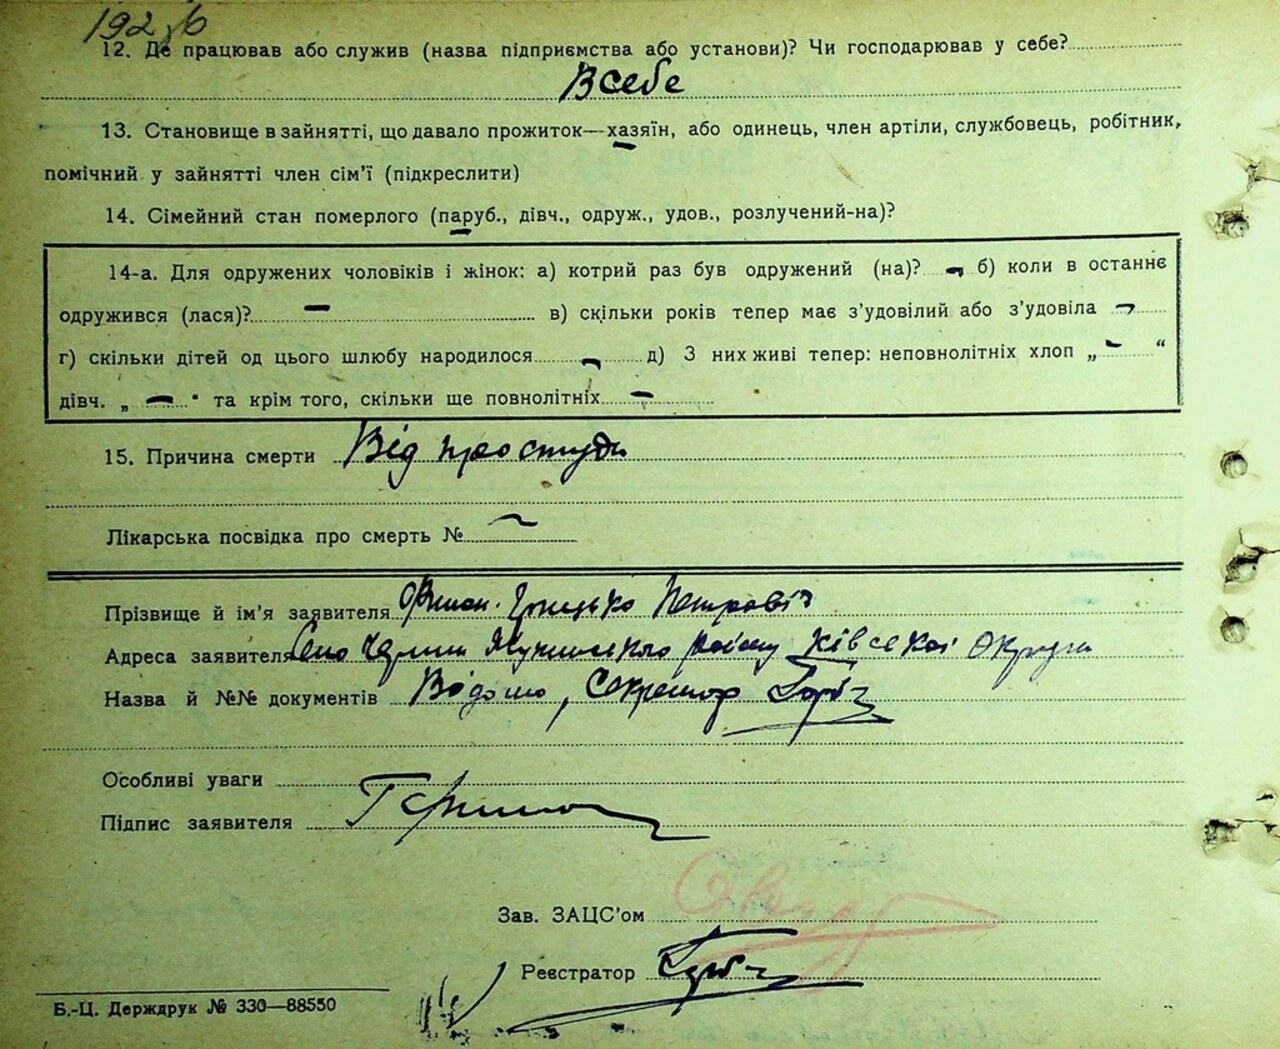 12. Де працював або служив (назва підприємства або установи)? Чи господарював у себе?
В себе
13. Становище в зайнятті, що давало прожиток—хазяїн, або одинець, член артіли, службовець, робітник,
помічний у зайнятті член сім'ї (підкреслити)
14. Сімейний стан померлого (паруб., дівч., одруж., удов., розлучений-на)?
14-а. Для одружених чоловіків і жінок: а) котрий раз був одружений (на)? - б) коли в останнє
одружився (лася)? — в) скільки років тепер має з'удовілий або з'удовіла -
г) скільки дітей од цього шлюбу народилося - д) З них живі тепер: неповнолітніх хлоп „ - “
дівч. „ — " та крім того, скільки ще повнолітніх —
15. Причина смерти Від простуди
Лікарська посвідка про смерть № —
Прізвище й ім'я заявителя Грицько Петровіч
Адреса заявителя Село району Ківської Округи
Назва й №№ документів Відомо, Секретар
Особливі уваги
Підпис заявителя
Зав. ЗАЦС'ом
Реєстратор
Б.-Ц. Держдрук № 330—88550